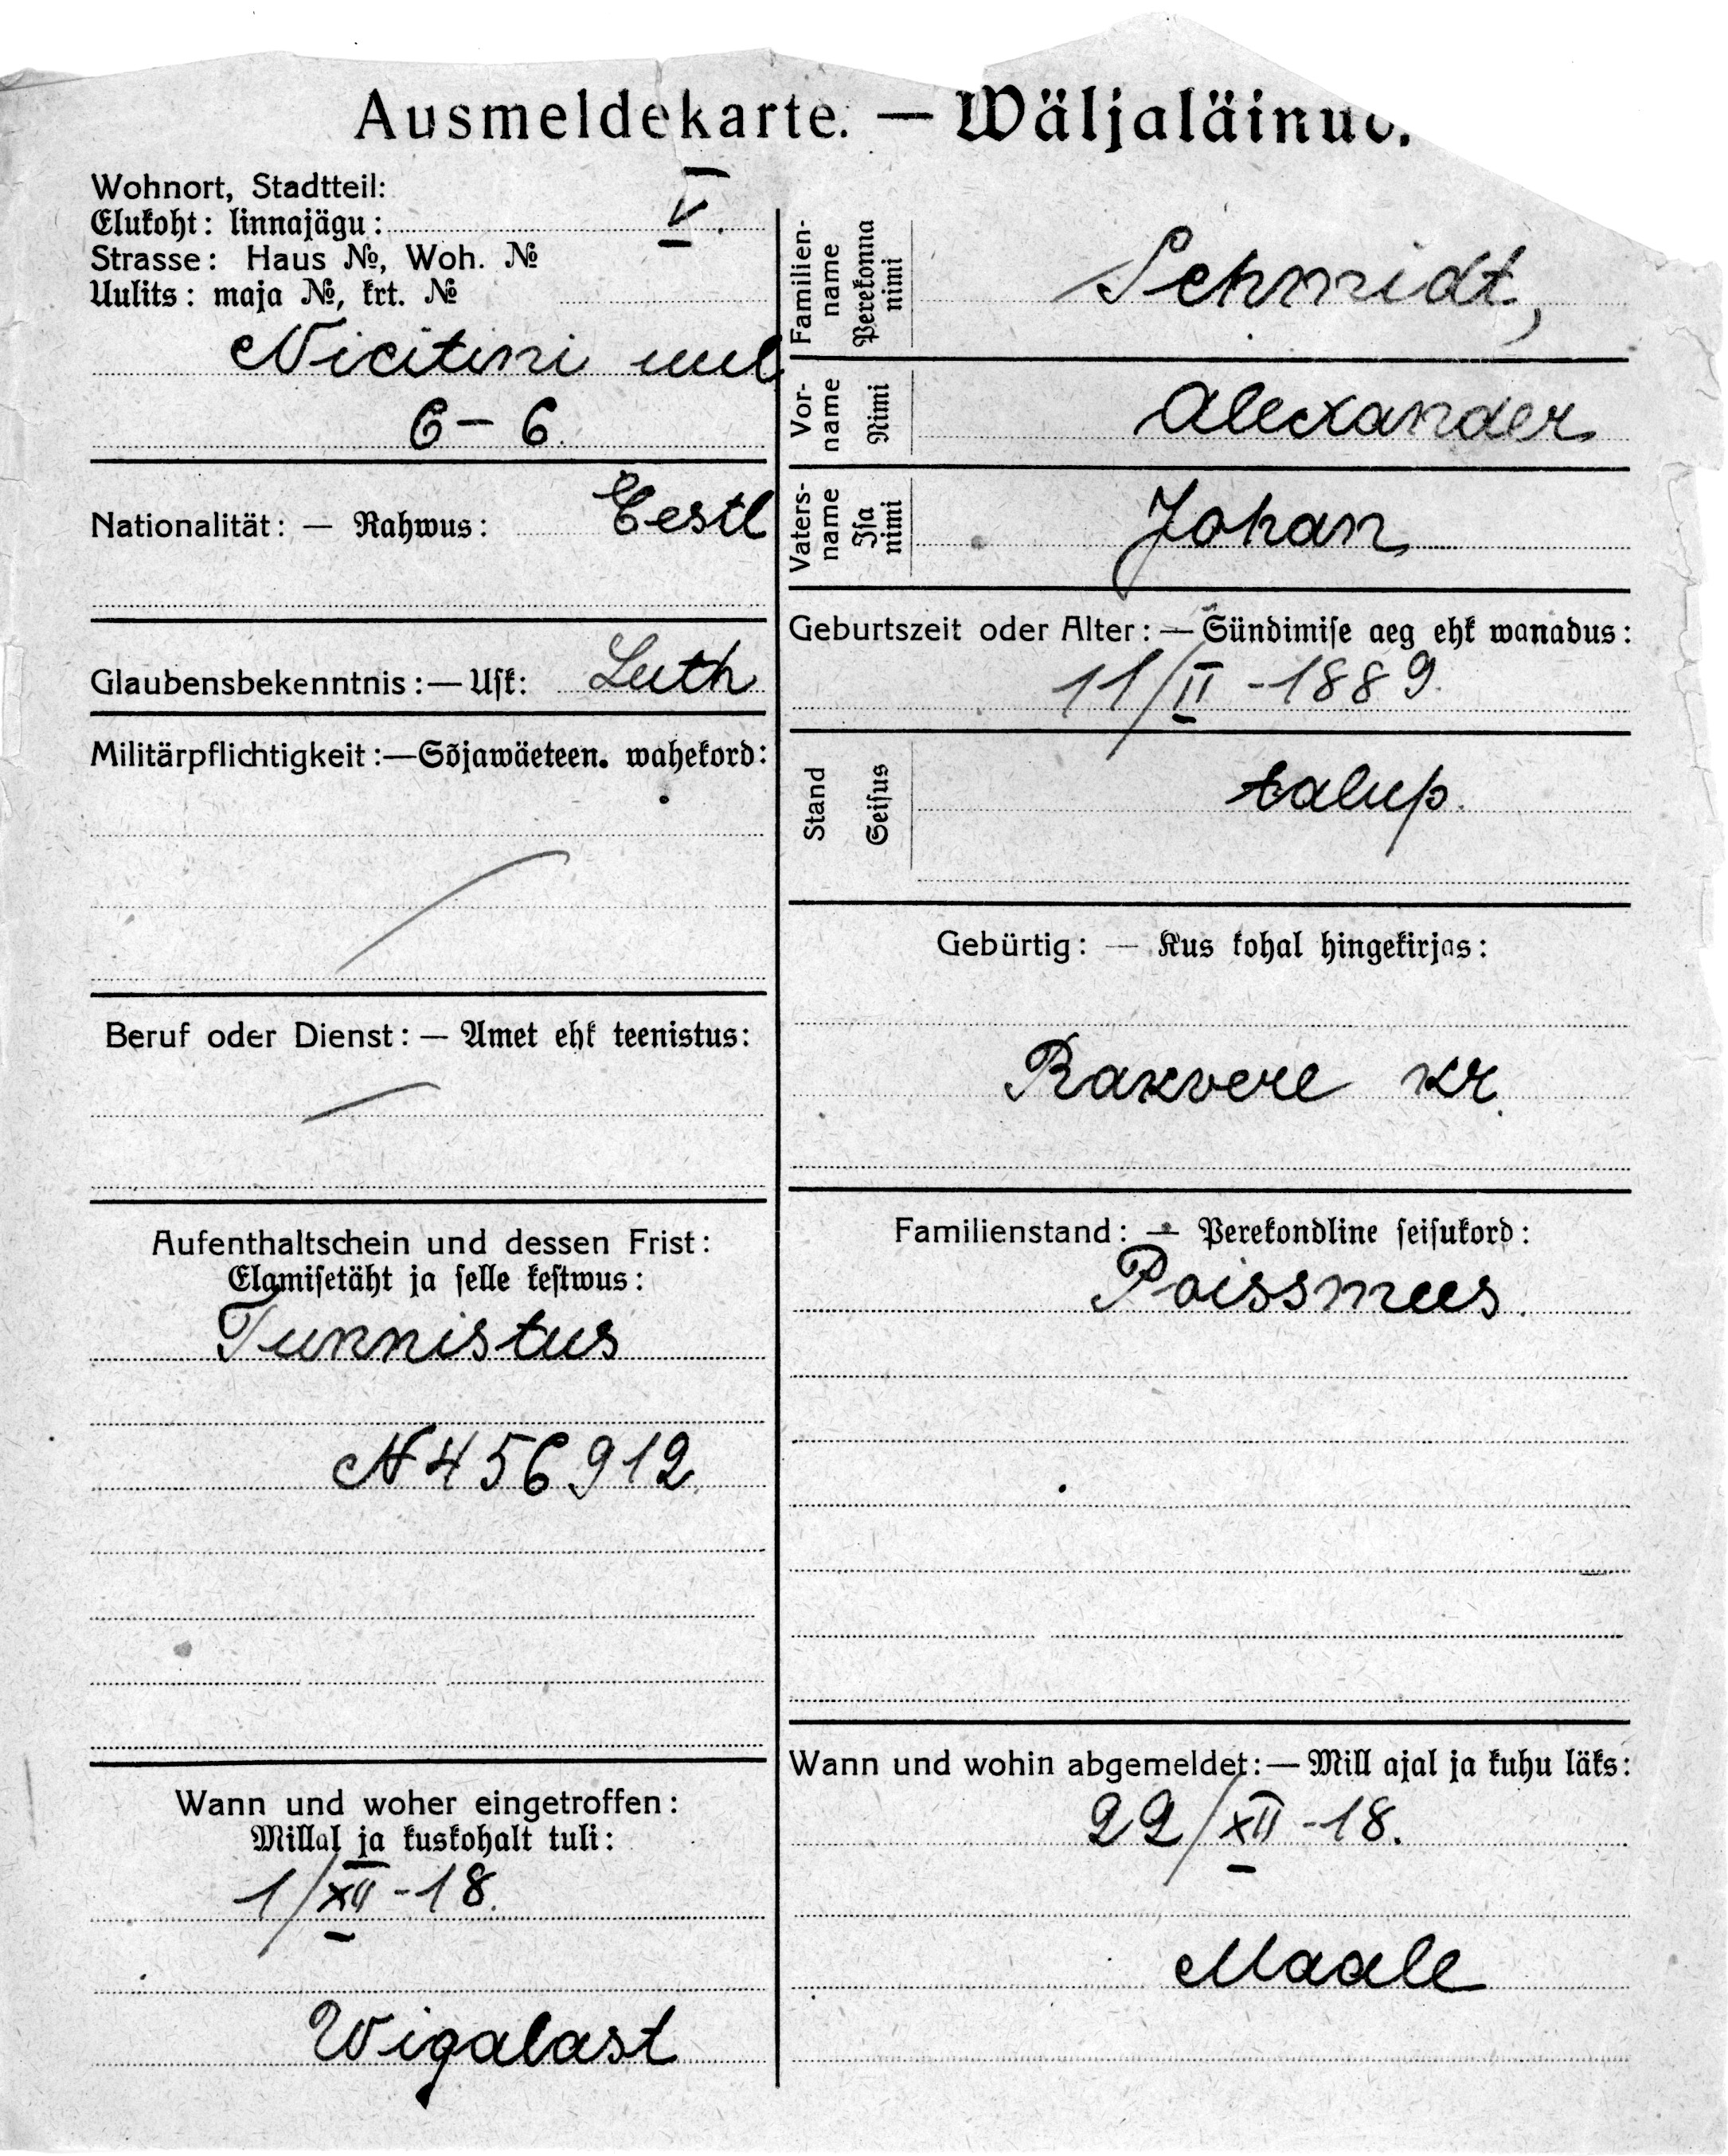 Ausmeldekarte. — Wäljaläinud.
Wohnort, Stadtteil:
Elukoht: linnajägu: V.
Strasse: Haus №, Woh. №
Uulits: maja №, krt. №
Nicitini uul
6 – 6.
Nationalität: — Rahwus: Eestl
Glaubensbekenntnis: — Usk: Luth
Militärpflichtigkeit: — Sõjawäeteen. wahekord:
Beruf oder Dienst: — Amet ehk teenistus:
Aufenthaltschein und dessen Frist:
Elamisetäht ja selle kestwus:
Tunnistus
N 456912.
Wann und woher eingetroffen:
Millal ja kuskohalt tuli:
1/XII -18.
Wigalast
Familien-
name
Perekonna
nimi
Schmidt,
Vor-
name
Nimi
Alexander
Vaters-
name
Isa
nimi
Johan
Geburtszeit oder Alter: — Sündimise aeg ehk wanadus:
11/II -1889.
Stand
Seisus
talup.
Gebürtig: — Kus kohal hingekirjas:
Rakvere kr.
Familienstand: — Perekondline seisukord:
Poissmees.
Wann und wohin abgemeldet: — Mill ajal ja kuhu läks:
22/XII -18.
Maale